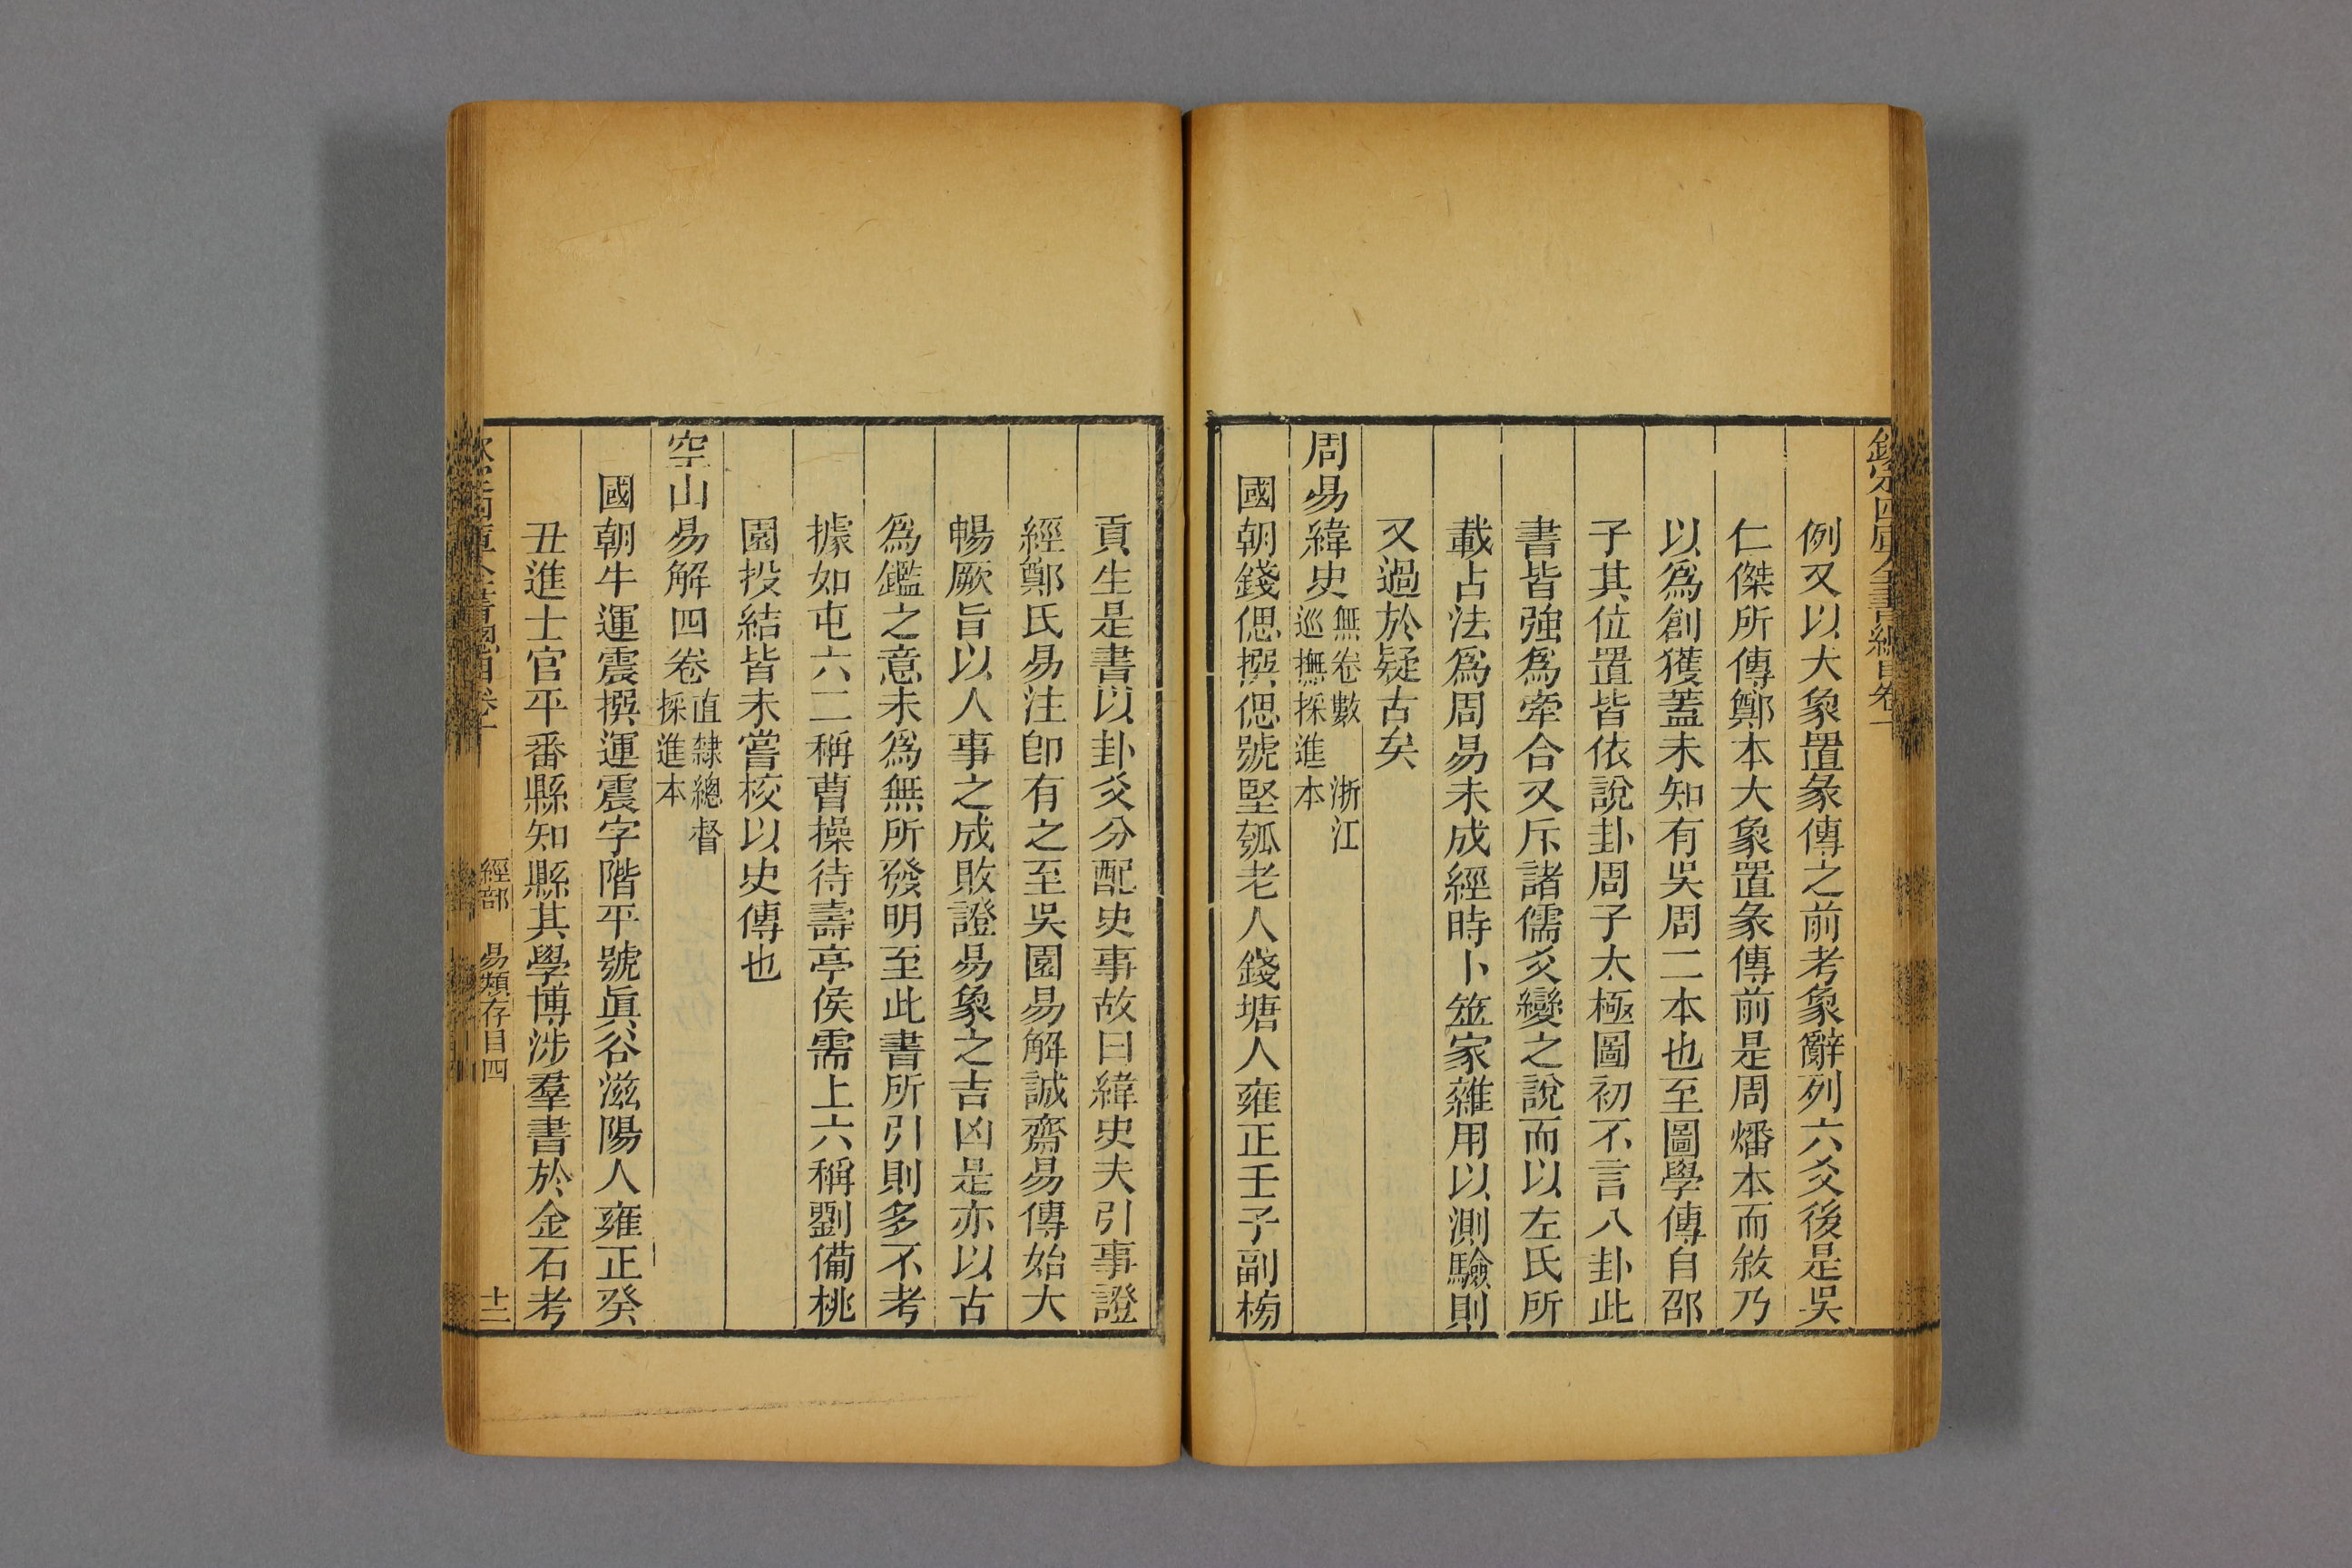 欽定四庫全書總目卷十
例又以大象置彖傳之前考象辭列六爻後是吳
仁傑所傳鄭本大象置彖傳前是周燔本而敘乃
以爲創獲蓋未知有吳周二本也至圖學傳自邵
子其位置皆依說卦周子太極圖初不言八卦此
書皆強爲牽合又斥諸儒爻變之說而以左氏所
載占法爲周易未成經時卜筮家雜用以測驗則
又過於疑古矣
周易緯史無卷數　浙江
巡撫採進本
國朝錢偲撰偲號堅瓠老人錢塘人雍正壬子副榜
貢生是書以卦爻分配史事故曰緯史夫引事證
經鄭氏易注卽有之至吳園易解誠齋易傳始大
暢厥旨以人事之成敗證易象之吉凶是亦以古
爲鑑之意未爲無所發明至此書所引則多不考
據如屯六二稱曹操待壽亭侯需上六稱劉備桃
園投結皆未嘗核以史傳也
空山易解四卷直隸總督
採進本
國朝牛運震撰運震字階平號眞谷滋陽人雍正癸
丑進士官平番縣知縣其學博涉羣書於金石考
經部　易類存目四
十二